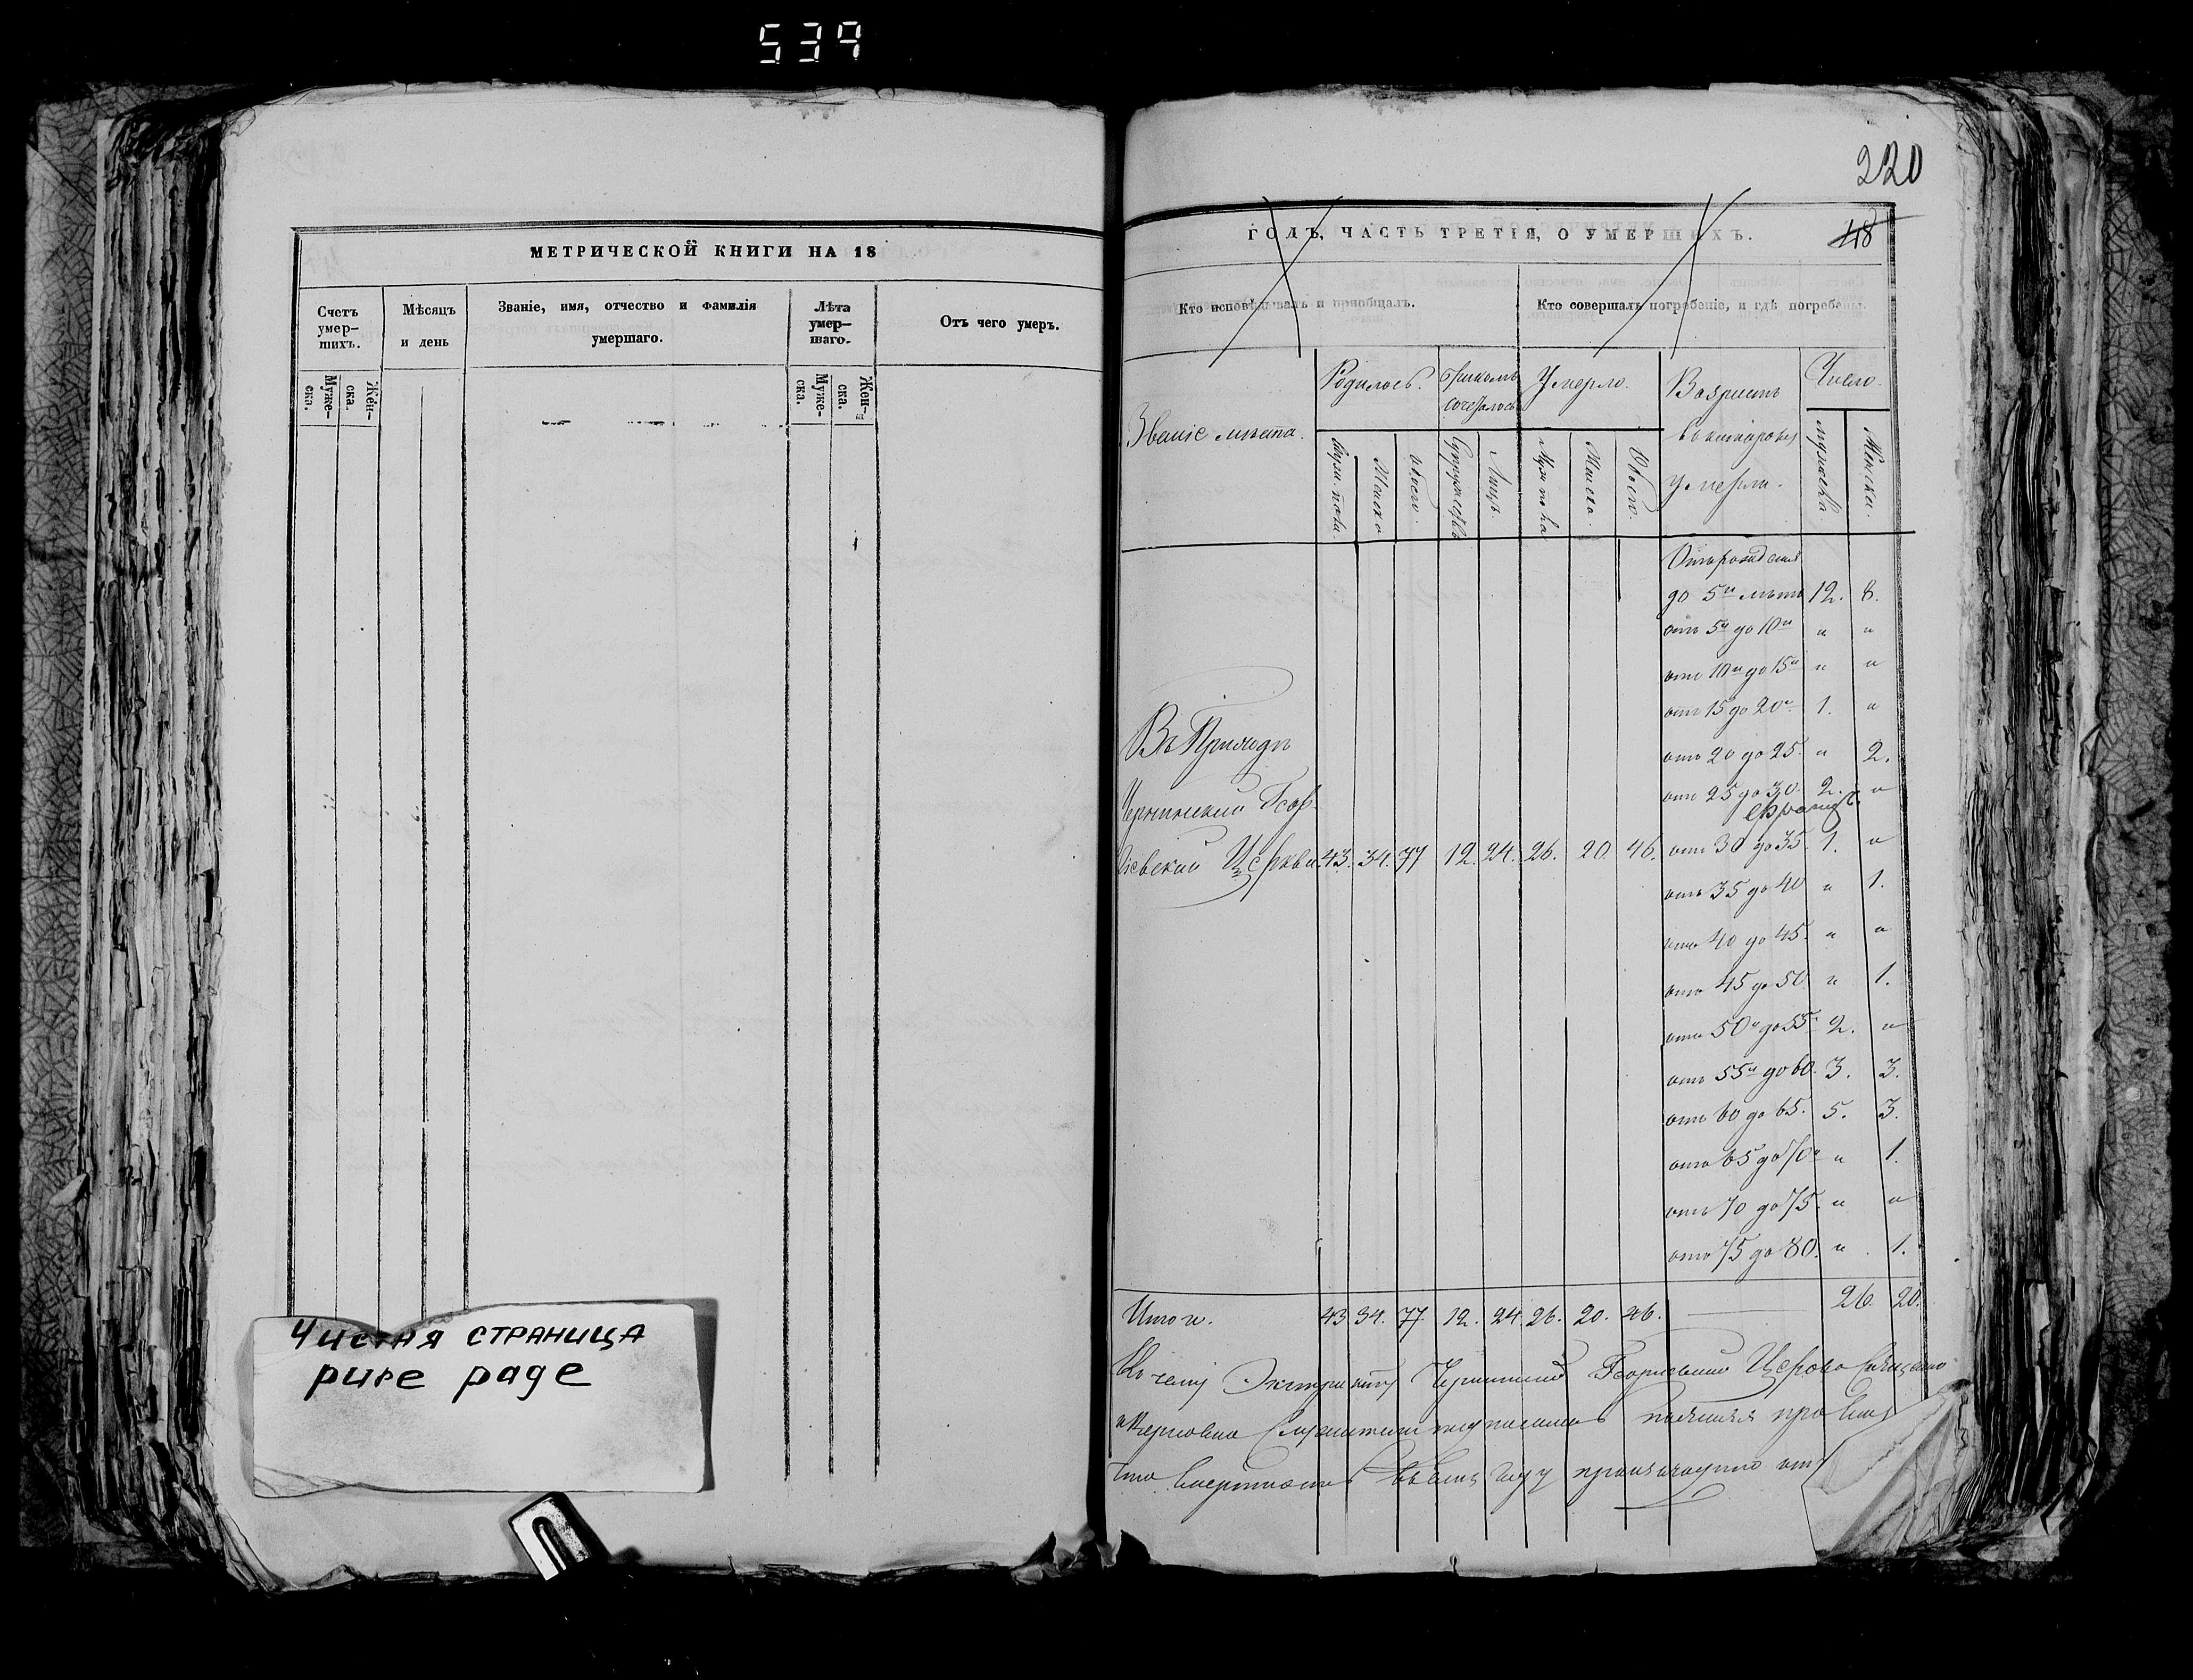 539
МЕТРИЧЕСКОЙ КНИГИ НА 18
Счетъ умер-шихъ.
Муже-ска.
Жен-ска.
Мѣсяцъ и день
Званіе, имя, отчество и фамилія умершаго.
Лѣта умер-шаго.
Муже-ска.
Жен-ска.
Отъ чего умеръ.
Чистая страница
pure page
220
ГОДЪ, ЧАСТЬ ТРЕТІЯ, О УМЕРШИХЪ.
48
Кто исповѣдывалъ и пріобщалъ.
Кто совершалъ погребеніе, и гдѣ погребены.
Званіе мѣста.
Родилось.
Бракомъ сочеталось
Умерло.
Возрастъ
въ которомъ
умерли.
Число.
Муж. пола.
Женска
Обоего.
Супружествъ
Лицъ.
Муж. пола
Женска.
Обоего.
мужеска.
Женска.
Отъ рожденія
до 5и лѣтъ 12. 8.
отъ 5и до 10и " "
отъ 10и до 15и " "
отъ 15 до 20и 1. "
отъ 20 до 25. " 2.
отъ 25 до 30. 2. "
отъ 30 до 35. 1. "
отъ 35 до 40 " 1.
отъ 40 до 45. " "
отъ 45 до 50. " 1.
отъ 50и до 55 2. "
отъ 55и до 60. 3. 3.
отъ 60 до 65. 5. 3.
отъ 65 до 70и " 1.
отъ 70 до 75. " "
отъ 75 до 80. " 1.
Въ Приходѣ
Геор-
гіевской Церкви 43. 34. 77 12. 24. 26. 20. 46.
Итого. 43 34. 77 12. 24. 26. 20. 46. 26. 20.
Къ сему Экстракту Георгіевской Церкви
подписались
что смертность въ семъ году